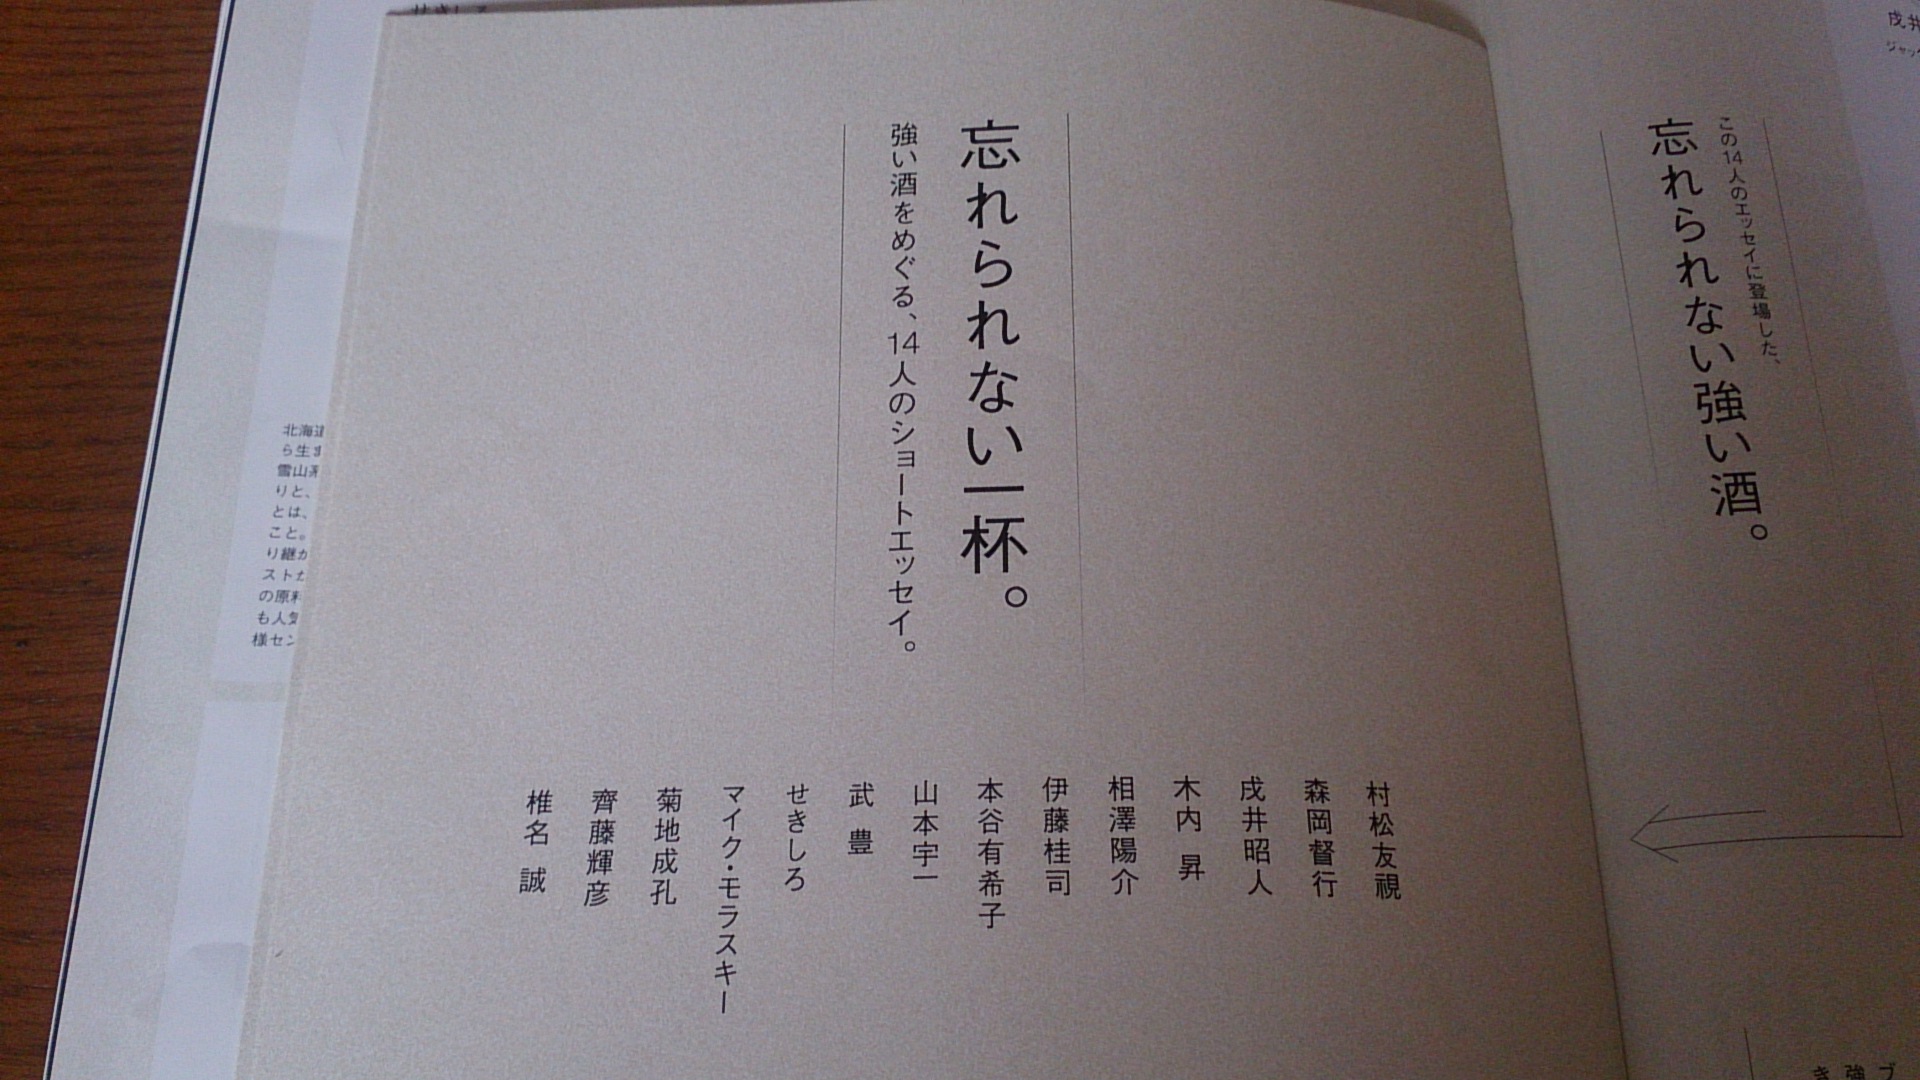 戌井
ジャック
この14人のエッセイに登場した、
忘れられない強い酒。
忘れられない一杯。
強い酒をめぐる、14人のショートエッセイ。
村松友視
森岡督行
戌井昭人
木内 昇
相澤陽介
伊藤桂司
本谷有希子
山本宇一
武 豊
せきしろ
マイク・モラスキー
菊地成孔
齊藤輝彦
椎名 誠
せきしろ
北海道
ら生ま
雪山
りと、
とは、
こと。
り継が
スト
の原料
も人気
様セン